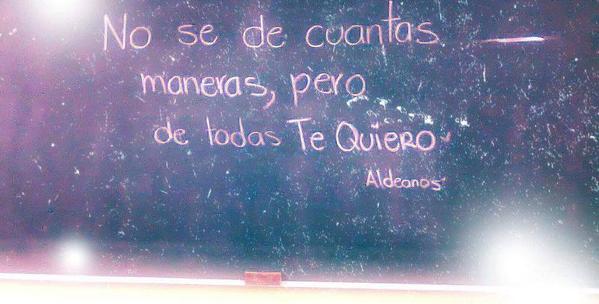 No se de cuantas
maneras, pero
de todas Te Quiero
Aldeanos